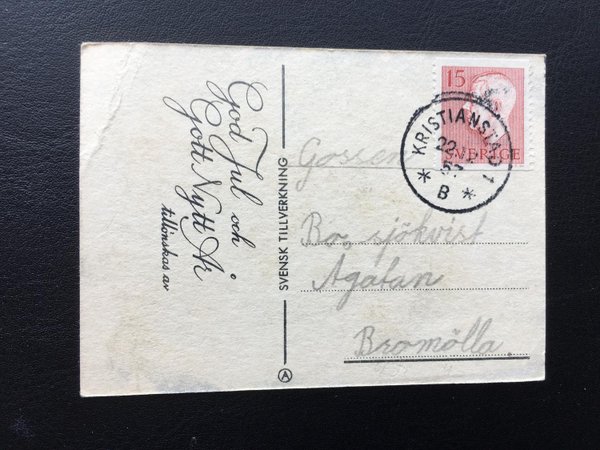 God Jul och
Gott Nytt År
tillönskas av
SVENSK TILLVERKNING
A
15
SVERIGE
KRISTIANSTAD 1
22
B
Gossen
Bo, sjökvist
Agatan
Bromölla.